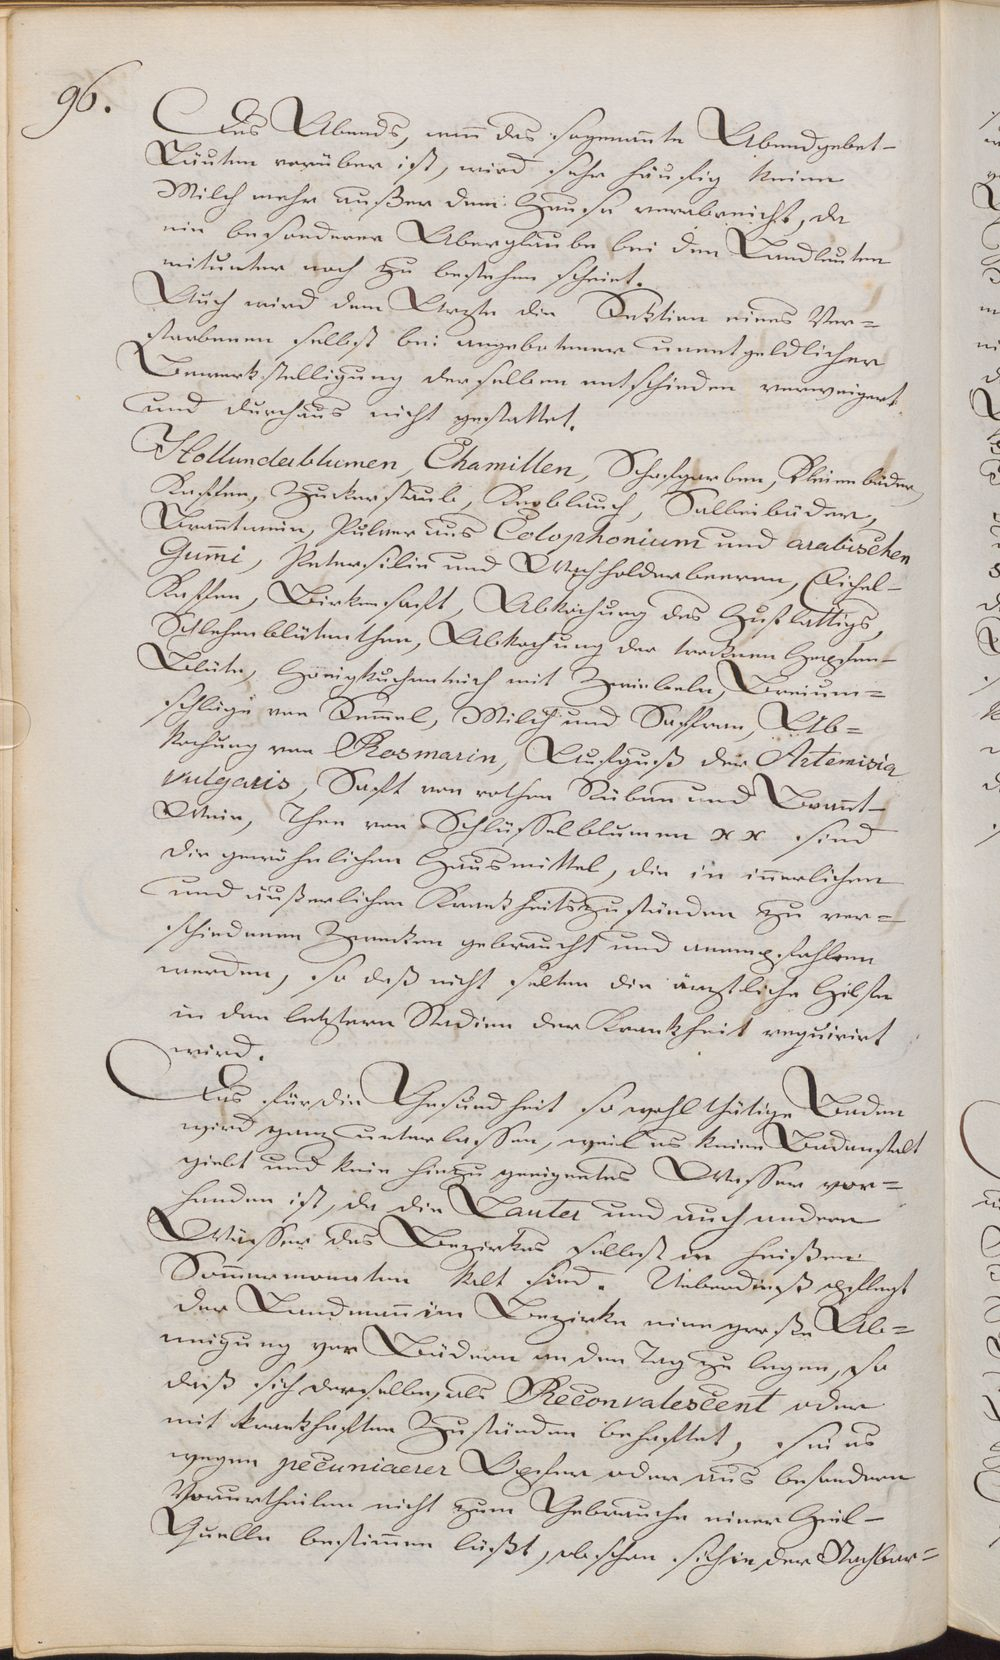 96.
Des Abends, wenn das sogenannte Abendgebet-
Läuten vorüber ist, wird sehr häufig keine
Milch mehr außer dem Hause verabreicht, da
ein besonderer Aberglaube bei den Landleuten
mitunter noch zu bestehen scheint.
Auch wird dem Arzte die Sektion eines Ver=
storbenen selbst bei angebotener unentgeldlicher
Bewerkstelligung derselben entschieden verweigert
und durchaus nicht gestattet.
Hollunderblumen, Chamillen, Schafgarben, Kleienbäder,
Kaffee, Zuckerstaub, Knoblauch, Salbeibäder,
Branntwein, Pulver aus Colophonium und arabischen
Gum̅i, Petersilie und Wachholderbeeren, Eichel-
Kaffee, Birkensaft, Abkochung des Huflattigs,
Schlehenblütenthee, Abkochung der trocknen Hopfen-
Blüte, Honigkuchenteich mit Zwiebeln, Breium=
schläge von Sem̅el, Milch und Saffran, Ab=
kochung von Rosmarin, Aufguß der Artemisia
vulgaris, Saft von rothen Rüben und Brannt-
Wein, Thee von Schlüsselblumen xx sind
die gewöhnlichen Hausmittel, die in in̅erlichen
und äußerlichen Krankheitszuständen zu ver=
schiedenen Zwecken gebraucht und anempfohlen
werden, so daß nicht selten die ärztliche Hilfe
in den letztern Stadien der Krankheit requirirt
wird.
Das für die Gesundheit so wohlthätige Baden
wird ganz unterlassen, weil es keine Badanstalt
giebt und kein hiezu geeignetes Wasser vor=
handen ist, da die Lauter und auch andere
Wässer des Bezirkes selbst in heißen
Som̅ermonaten kalt sind. Ueberdieß pflegt
der Landman̅ im Bezirke eine große Ab=
neigung vor Bädern an den Tag zu legen, so
daß sich derselbe, als Reconvalescent oder
mit krankhaften Zuständen behaftet, sei es
wegen pecuniaerer Opfer oder aus besondern
Vorurtheilen nicht zum Gebrauche einer Heil-
Quelle bestim̅en läßt, obschon sich in der Nachbar=